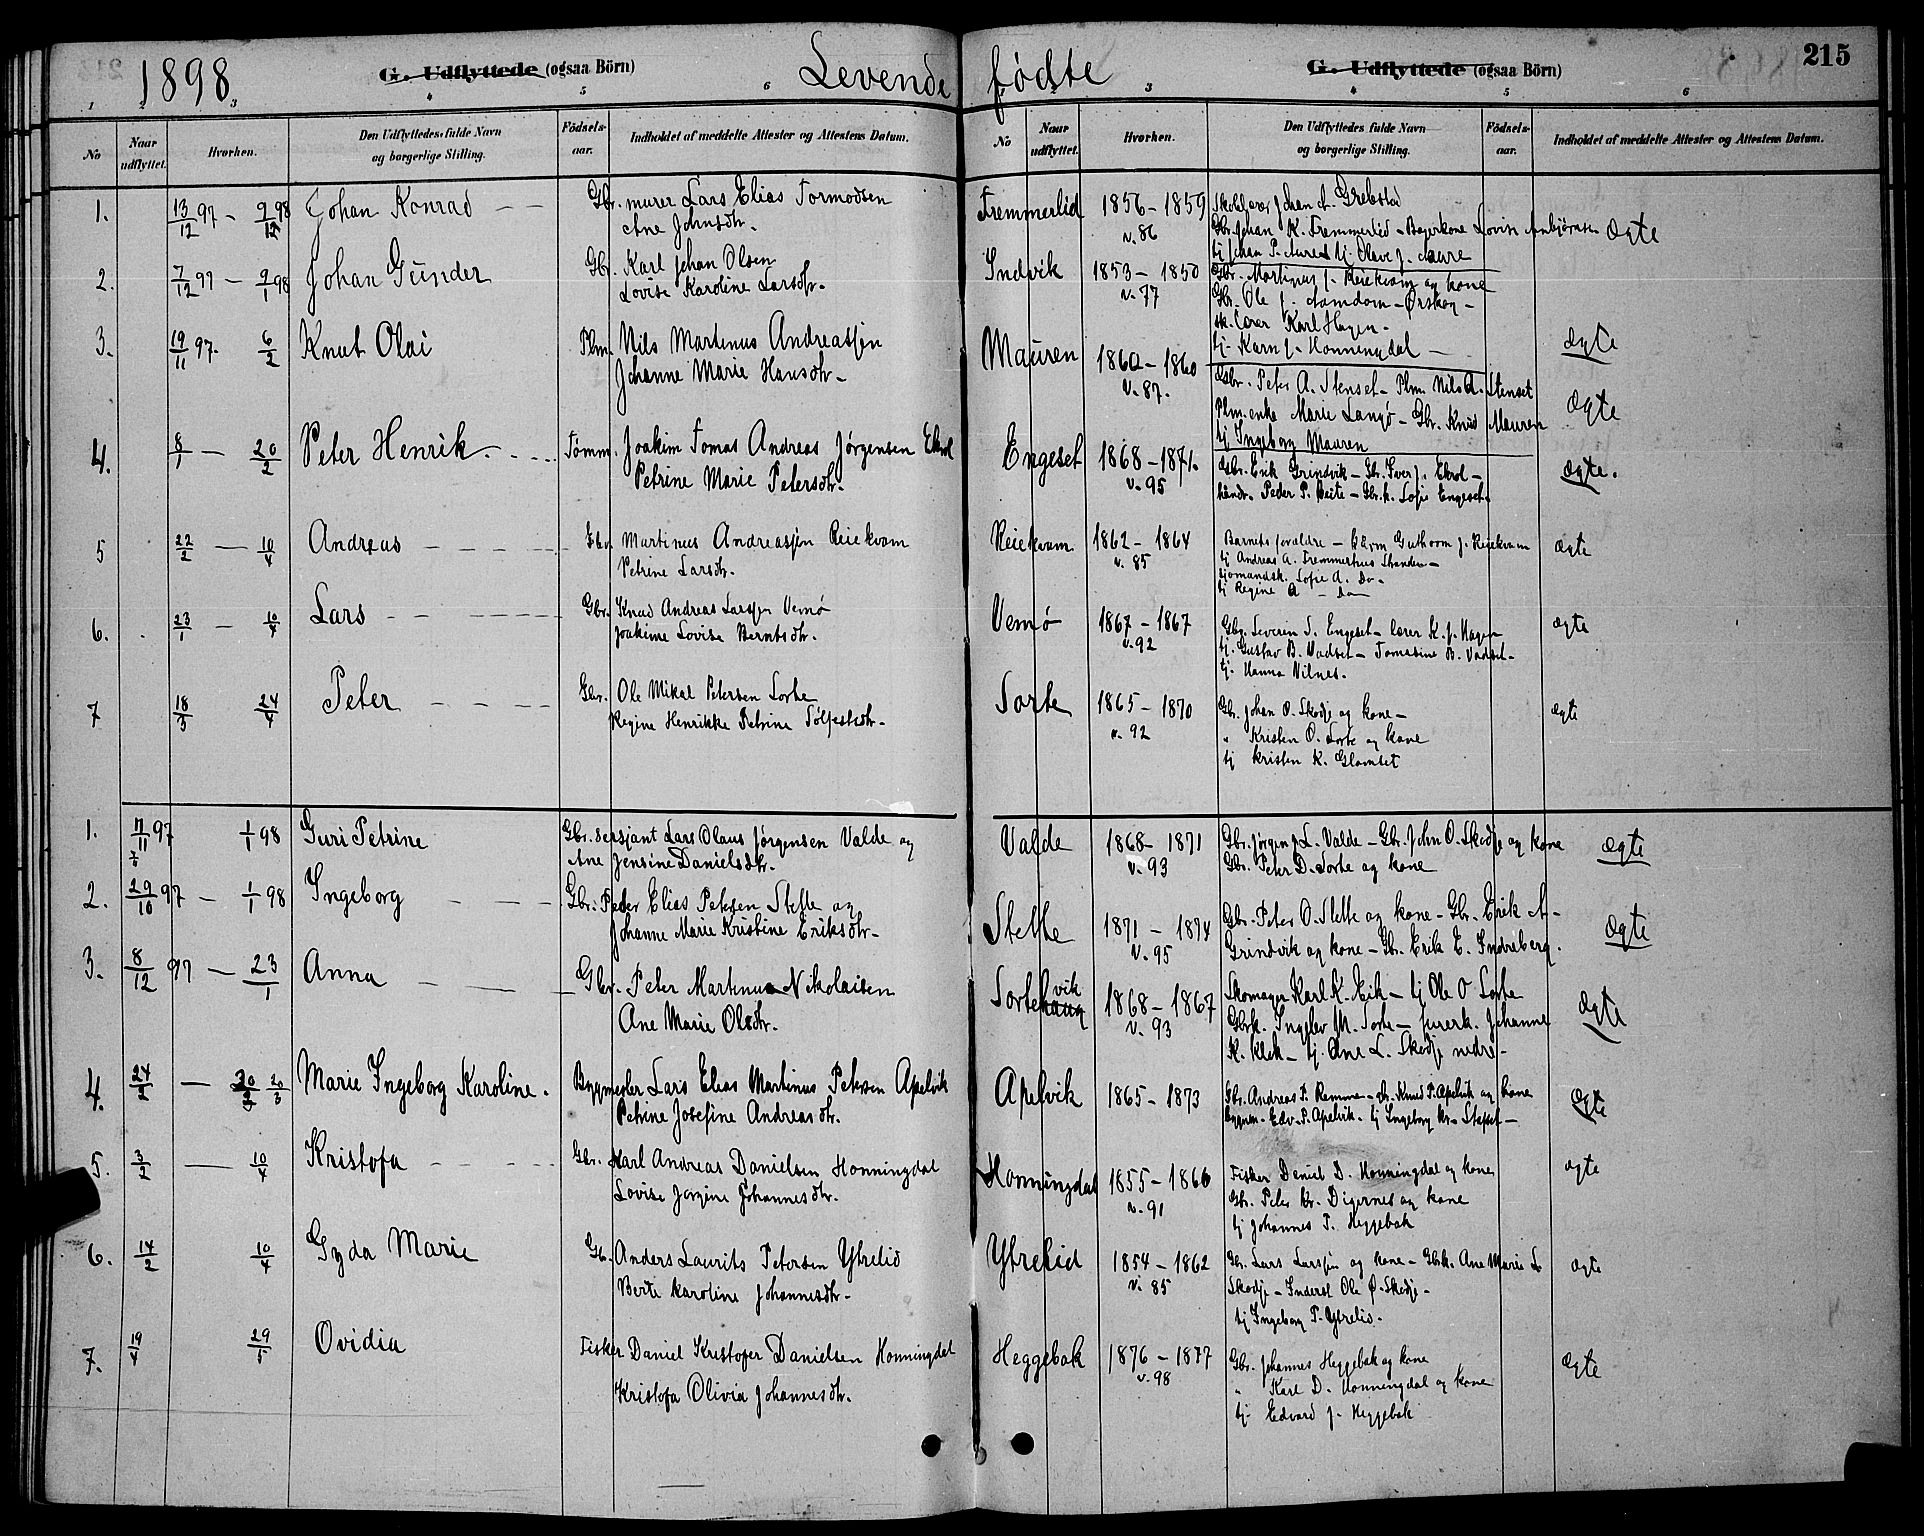 1898
G. Udflyttede (ogsaa Börn)
Levende fødte
G. Udflyttede (ogsaa Börn)
215
1 2 3 4 5 6
3 4 5 6
No
Naar udflyttet.
Hvorhen.
Den Udflyttedes fulde Navn og borgerlige Stilling.
Födsels-aar.
Indholdet af meddelte Attester og Attestens Datum.
No
Naar udflyttet.
Hvorhen.
Den Udflyttedes fulde Navn og borgerlige Stilling.
Födsels-aar.
Indholdet af meddelte Attester og Attestens Datum.
1. 13/12 97 – 9/12 98 Johan Konrad – – Gbr. murer Lars Elias Tormodsen
Ane Johnsdtr.
Fremmerlid 1856 – 1859
v. 86
Skolelærer Johan A. Grebstad
Gbr. Johan K. Fremmerlid – Bagerkone Lovise
tj Johan P. Aure tj. Olave J. Aure
Ægte
2. 7/12 97 – 9/1 98 Johan Gunder Gbr. Karl Johan Olsen
Lovise Karoline Larsdtr.
Indvik 1853 – 1850
v. 77
Gbr. Martinus J. Reiekvam og kone
Gbr. Ole J. Aamdam – Ørskog –
sk. lærer Karl Hagen –
tj. Karn J. Honningdal –
ægte
3. 19/11 97. 6/2 Knut Olai Plm. Nils Martinus Andreassen
Johanne Marie Hansdtr –
Mauren 1860 – 1860
v. 87.
Gbr. Peter A. Stenset – Plm. Nils A. Stenset
Plm. enke Marie Langø – Gbr. Knud Mauren
tj Ingeborg Mauren
Ægte
4. 8/1 – 20/2 Peter Henrik – Tømm. Joakim Tomas Andreas Jørgensen Ekrol
Petrine Marie Petersdtr.
Engeset 1868 – 1871.
v. 95
Gbr. Erik Grindvik – Gbr. Iver J. Ekrol –
handr. Peder P. Beite – Gbr. k. Sofie Engeset.
ægte.
5 22/2 – 10/4 Andreas – – – – Gbr. Martinus Andreassen Reiekvam
Petrine Larsdtr.
Reiekvam 1862 – 1864
v. 85
Barnets forældre – Guthorm J. Reiekvam
tj Andreas A. Fremmerhus Stranden –
sjømandsk. Sofie A. Do –
tj Regine A – Do
ægte
6. 23/1 – 10/4 Lars – – – – – Gbr. Knud Andreas Larssen Vemø
Joakime Lovise Berntsdtr.
Vemø 1867 – 1867
v. 92
Gbr. Severin S. Engeset – lærer K. J. Hagen
tj. Gustav B. Vadset – Tomasine B. Vadset –
tj. Hanna Vilnes.
ægte
7 18/3 24/4 Peter – – – – Gbr. Ole Mikal Petersen Sorte
Regine Henrikke Petrine Sølfestdtr –
Sorte 1865 – 1870
v. 92
Gbr. Johan O. Skodje og kone –
" Kristen O. Sorte og kone
tj Kristen K. Glomset
ægte
1. 7/11 97 1/1 98 Guri Petrine Gbr. Sersjant Lars Olaus Jørgensen Valde og
Ane Jensine Danielsdtr.
Valde 1868 – 1871
v. 93
Gbr. Jørgen L. Valde – Gbr. John O. Skodje og kone
Gbr. Peter D. Sorte og kone
ægte
2. 29/10 97 – 1/1 98 Ingeborg – – – Gbr. Peder Elias Petersen Stette og
Johanne Marie Kristine Eriksdtr –
Stette 1871 – 1874
v. 95
Gbr. Peter O. Stette og kone – Gbr. Erik A –
Grindvik og kone – Gbr. Erik E. Indreberg.
Ægte
3. 8/12 97 – 23/1 Anna – – – Gbr. Peter Martinus Nikolaisen
Ane Marie Olsdtr.
Sortehaug vik 1868 – 1867
v. 93
Skomager Karl K. Eik – tj Ole O Sorte
Gbrk. Ingelev M. Sorte – murerk. Johanne
K. Klok – tj. Ane L. Skodje nedre –
Ægte
4. 24/2 – 20/3 20/3 Marie Ingeborg Karoline. Bygmester Lars Elias Martinus Petersen Apelvik
Petrine Josefine Andreasdtr.
Apelvik 1865 – 1873
Gbr. Andreas P. Remme – do. Knud P. Apelvik og kone
bygmes. Edv. P. Apelvik. tj Ingeborg –
Ægte
5. 3/2 – 10/4 Kristofa – – – – Gbr. Karl Andreas Danielsen Honningdal
Lovise Jørgine Johannesdtr.
Honningdal 1855 – 1866
v. 91
Fisker Daniel D. Honningdal og kone
Gbr. Peter Kr. Digernes og kone
tj Johannes P. Heggebak
ægte
6. 14/2 10/4 Gyda Marie Gb. Anders Laurits Petersen Ytrelid
Berte Karoline Johannesdtr –
Ytrelid 1854 – 1862
v. 85
Gbr. Lars Larssen og kone – Gbrk. Ane Marie L
Skodje – Inderst Ole O. Skodje –
tj Ingeborg P. Ytrelid.
ægte
7. 19/4 29/5 Ovidia Fisker Daniel Kristofer Danielsen Honningdal
Kristofa Olivia Johannesdtr.
Heggebak 1876 – 1877
v. 98
Gbr. Johannes Heggebak og kone
" Karl D. Honningdal og kone
tj. Edvard J. Heggebak
ægte